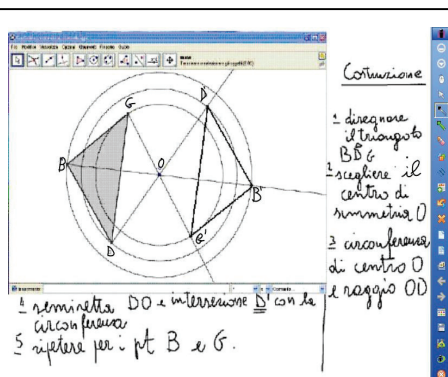 File Modifica Visualizza Opzioni Strumenti Finestra Guida
G
D'
B
O
B'
D
G'
Costruzione
1 disegnare
il triangolo
BDG
2 scegliere il
centro di
simmetria O
3 circonferenza
di centro O
e raggio OD
4 semiretta DO e intersezione D' con la
circonferenza
5 ripetere per i pt B e G.